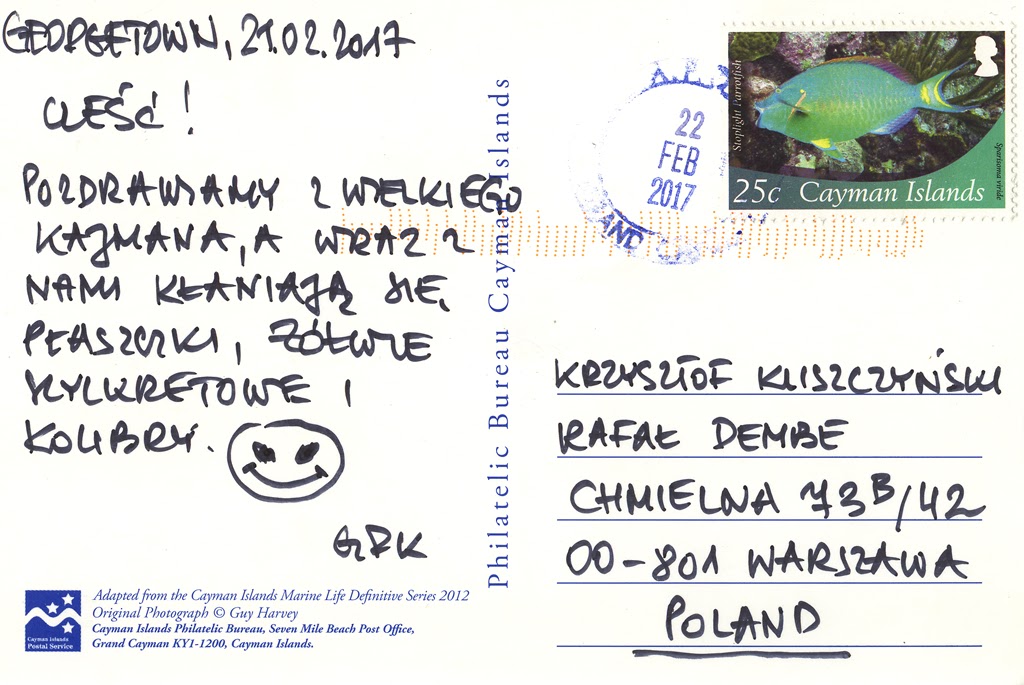 GEORGETOWN, 21.02.2017
CZEŚĆ!
POZDRAWIAMY Z WIELKIEGO
KAJMANA, A WRAZ Z
NAMI KŁANIAJĄ SIĘ
PŁASZCZKI, ŻÓŁWIE
SZYLKRETOWE I
KOLIBRY.
GRK
Adapted from the Cayman Islands Marine Life Definitive Series 2012
Original Photograph © Guy Harvey
Cayman Islands Philatelic Bureau, Seven Mile Beach Post Office,
Grand Cayman KY1-1200, Cayman Islands.
Cayman Islands
Postal Service
Philatelic Bureau Cayman Islands
22
FEB
2017
Stoplight Parrotfish
Sparisoma viride
25c Cayman Islands
KRZYSZTOF KLISZCZYŃSKI
RAFAŁ DEMBE
CHMIELNA 73B/42
00-801 WARSZAWA
POLAND